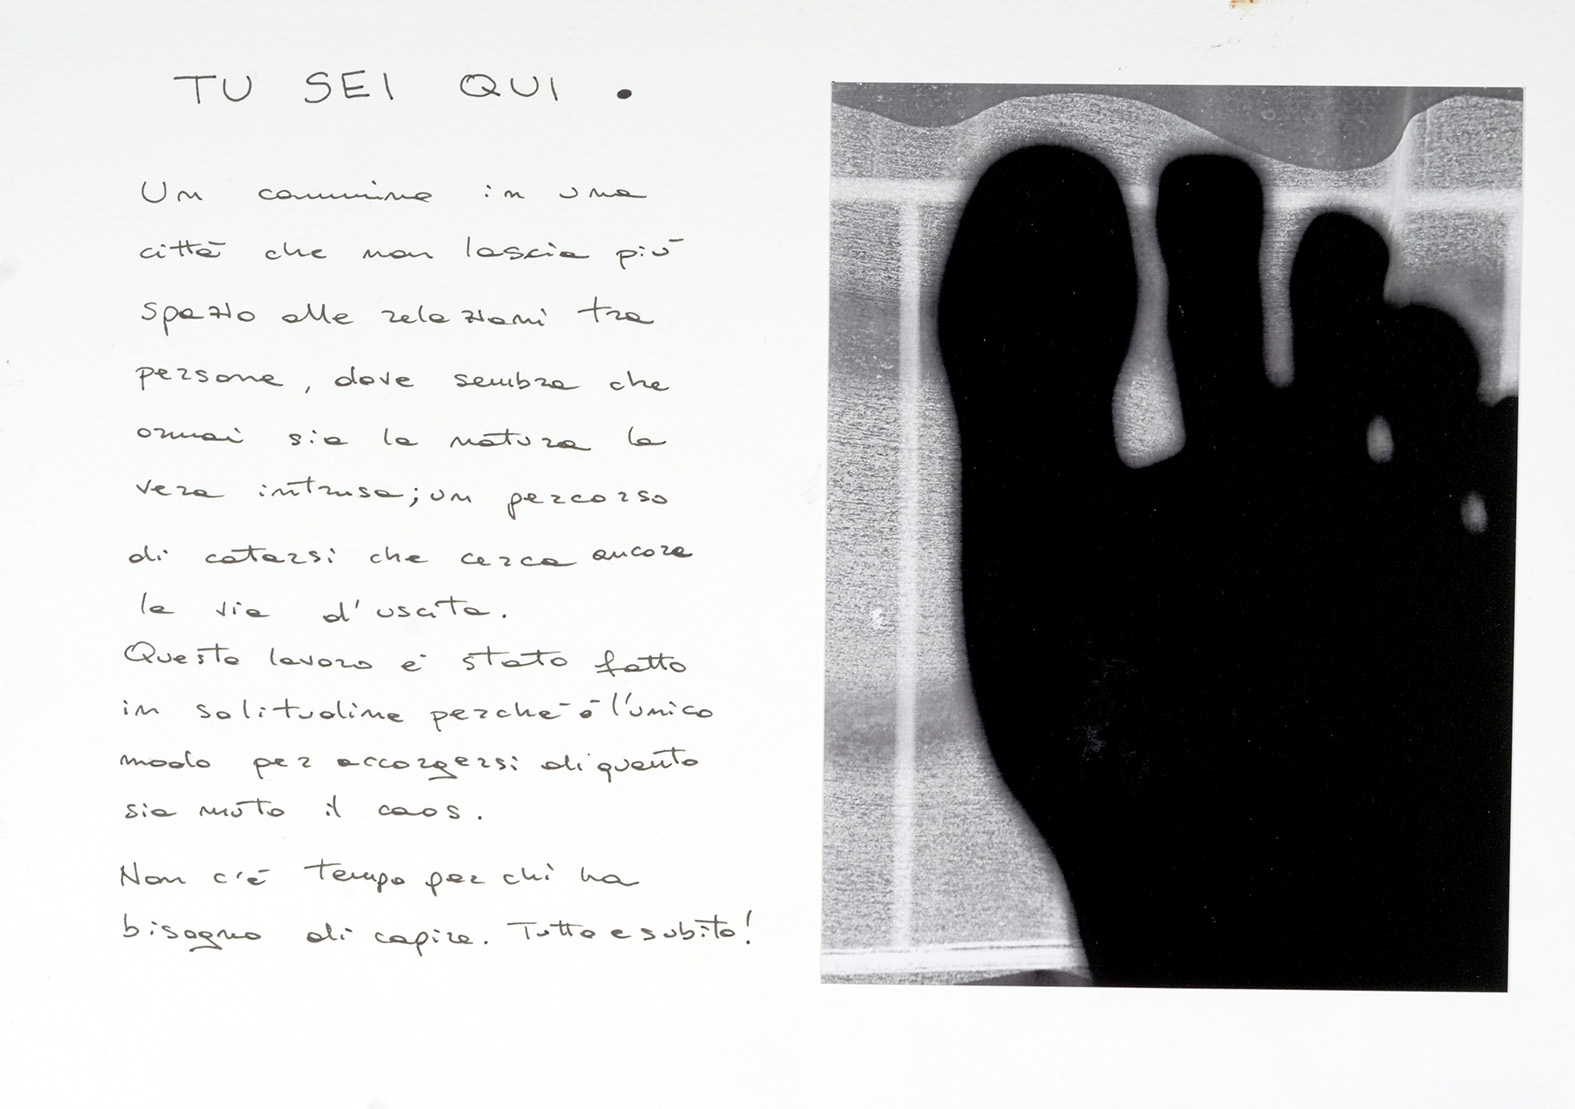 TU SEI QUI .
Un cammino in una
città che non lascia più
spazio alle relazioni tra
persone, dove sembra che
ormai sia la natura la
vera intrusa; un percorso
di catarsi che cerca ancora
la via d'uscita.
Questo lavoro è stato fatto
in solitudine perchè è l'unico
modo per accorgersi di quanto
sia muto il caos.
Non c'è tempo per chi ha
bisogno di capire. Tutto e subito!